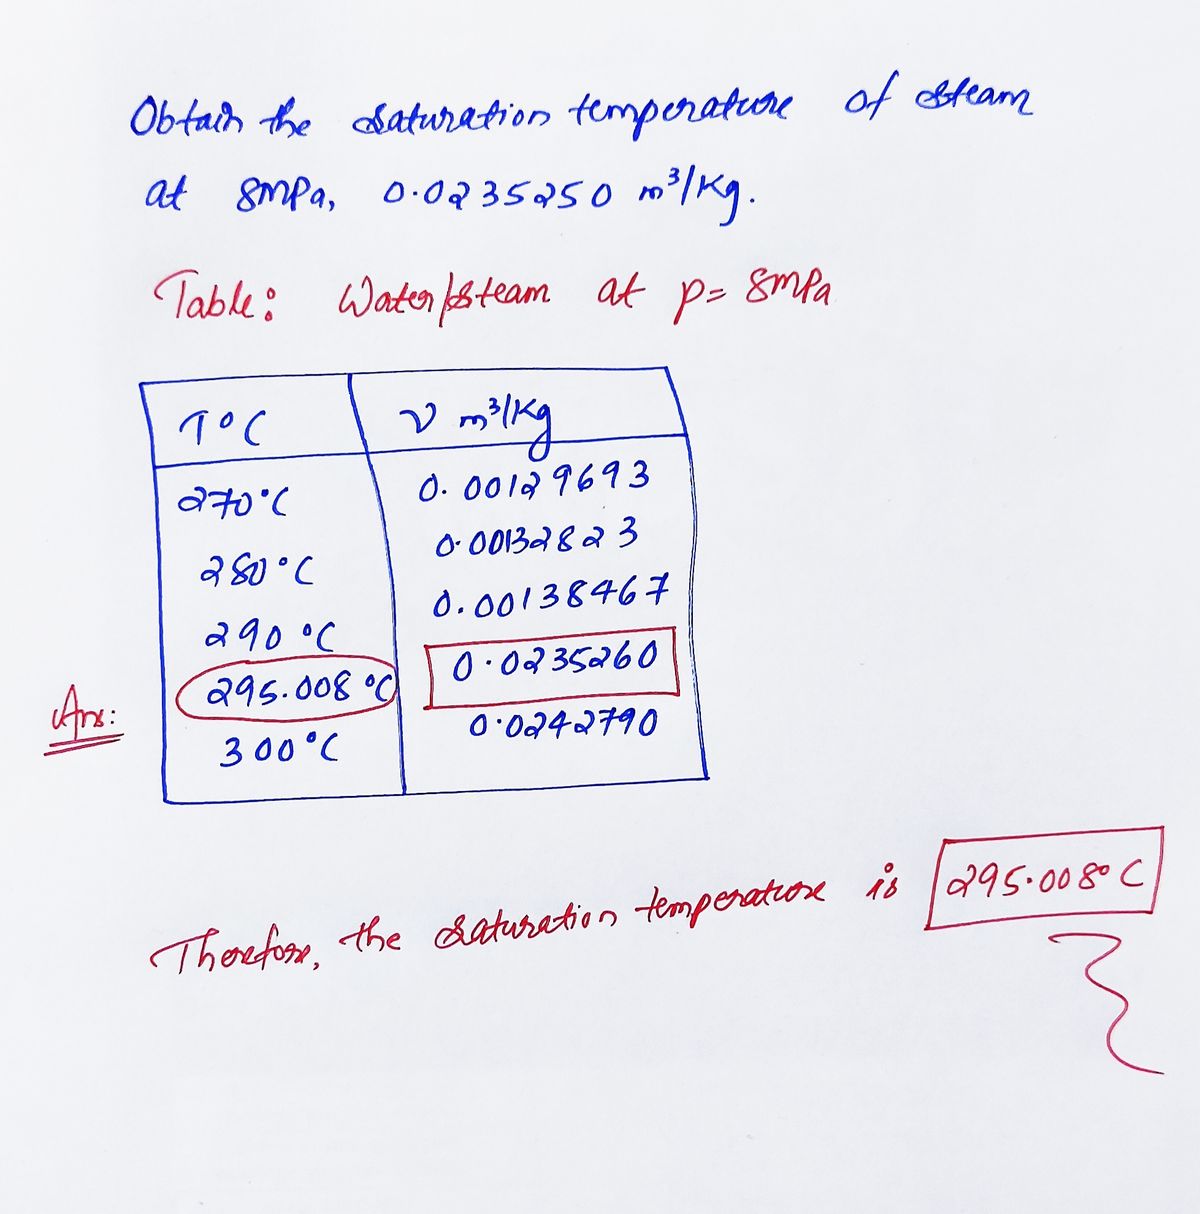 Obtain the saturation temperature of steam
at 8mPa, 0.0235250 m³/Kg.
Table: Water/steam at p= 8mPa
T°C ν m³/Kg
270°C 0.00129693
280°C 0.00132823
290°C 0.00138467
295.008°C 0.0235260
Ans:
300°C 0.0242790
Therefore, the saturation temperature is 295.008°C